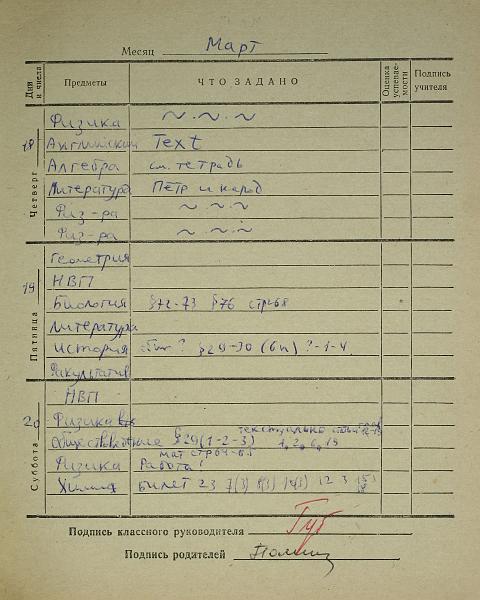 Месяц Март
Дни и числа Предметы ЧТО ЗАДАНО Оценка успевае-мости Подпись учителя
Четверг 18
Физика ~.~.~
Английский Text
Алгебра см. тетрадь
Литература Петр и народ
Физ-ра ~.~.~
Физ-ра ~.~.~
Пятница 19
Геометрия
НВП
Биология §72-73 §76
Литература
История §29-30 (6п) ?-1-4
Факультатив
Суббота 20
НВП
Физика
Обществоведение §29(1-2-3) текстуально
Физика Работа!
Химия Билет 23 7(3) 12 3
Подпись классного руководителя
Подпись родителей